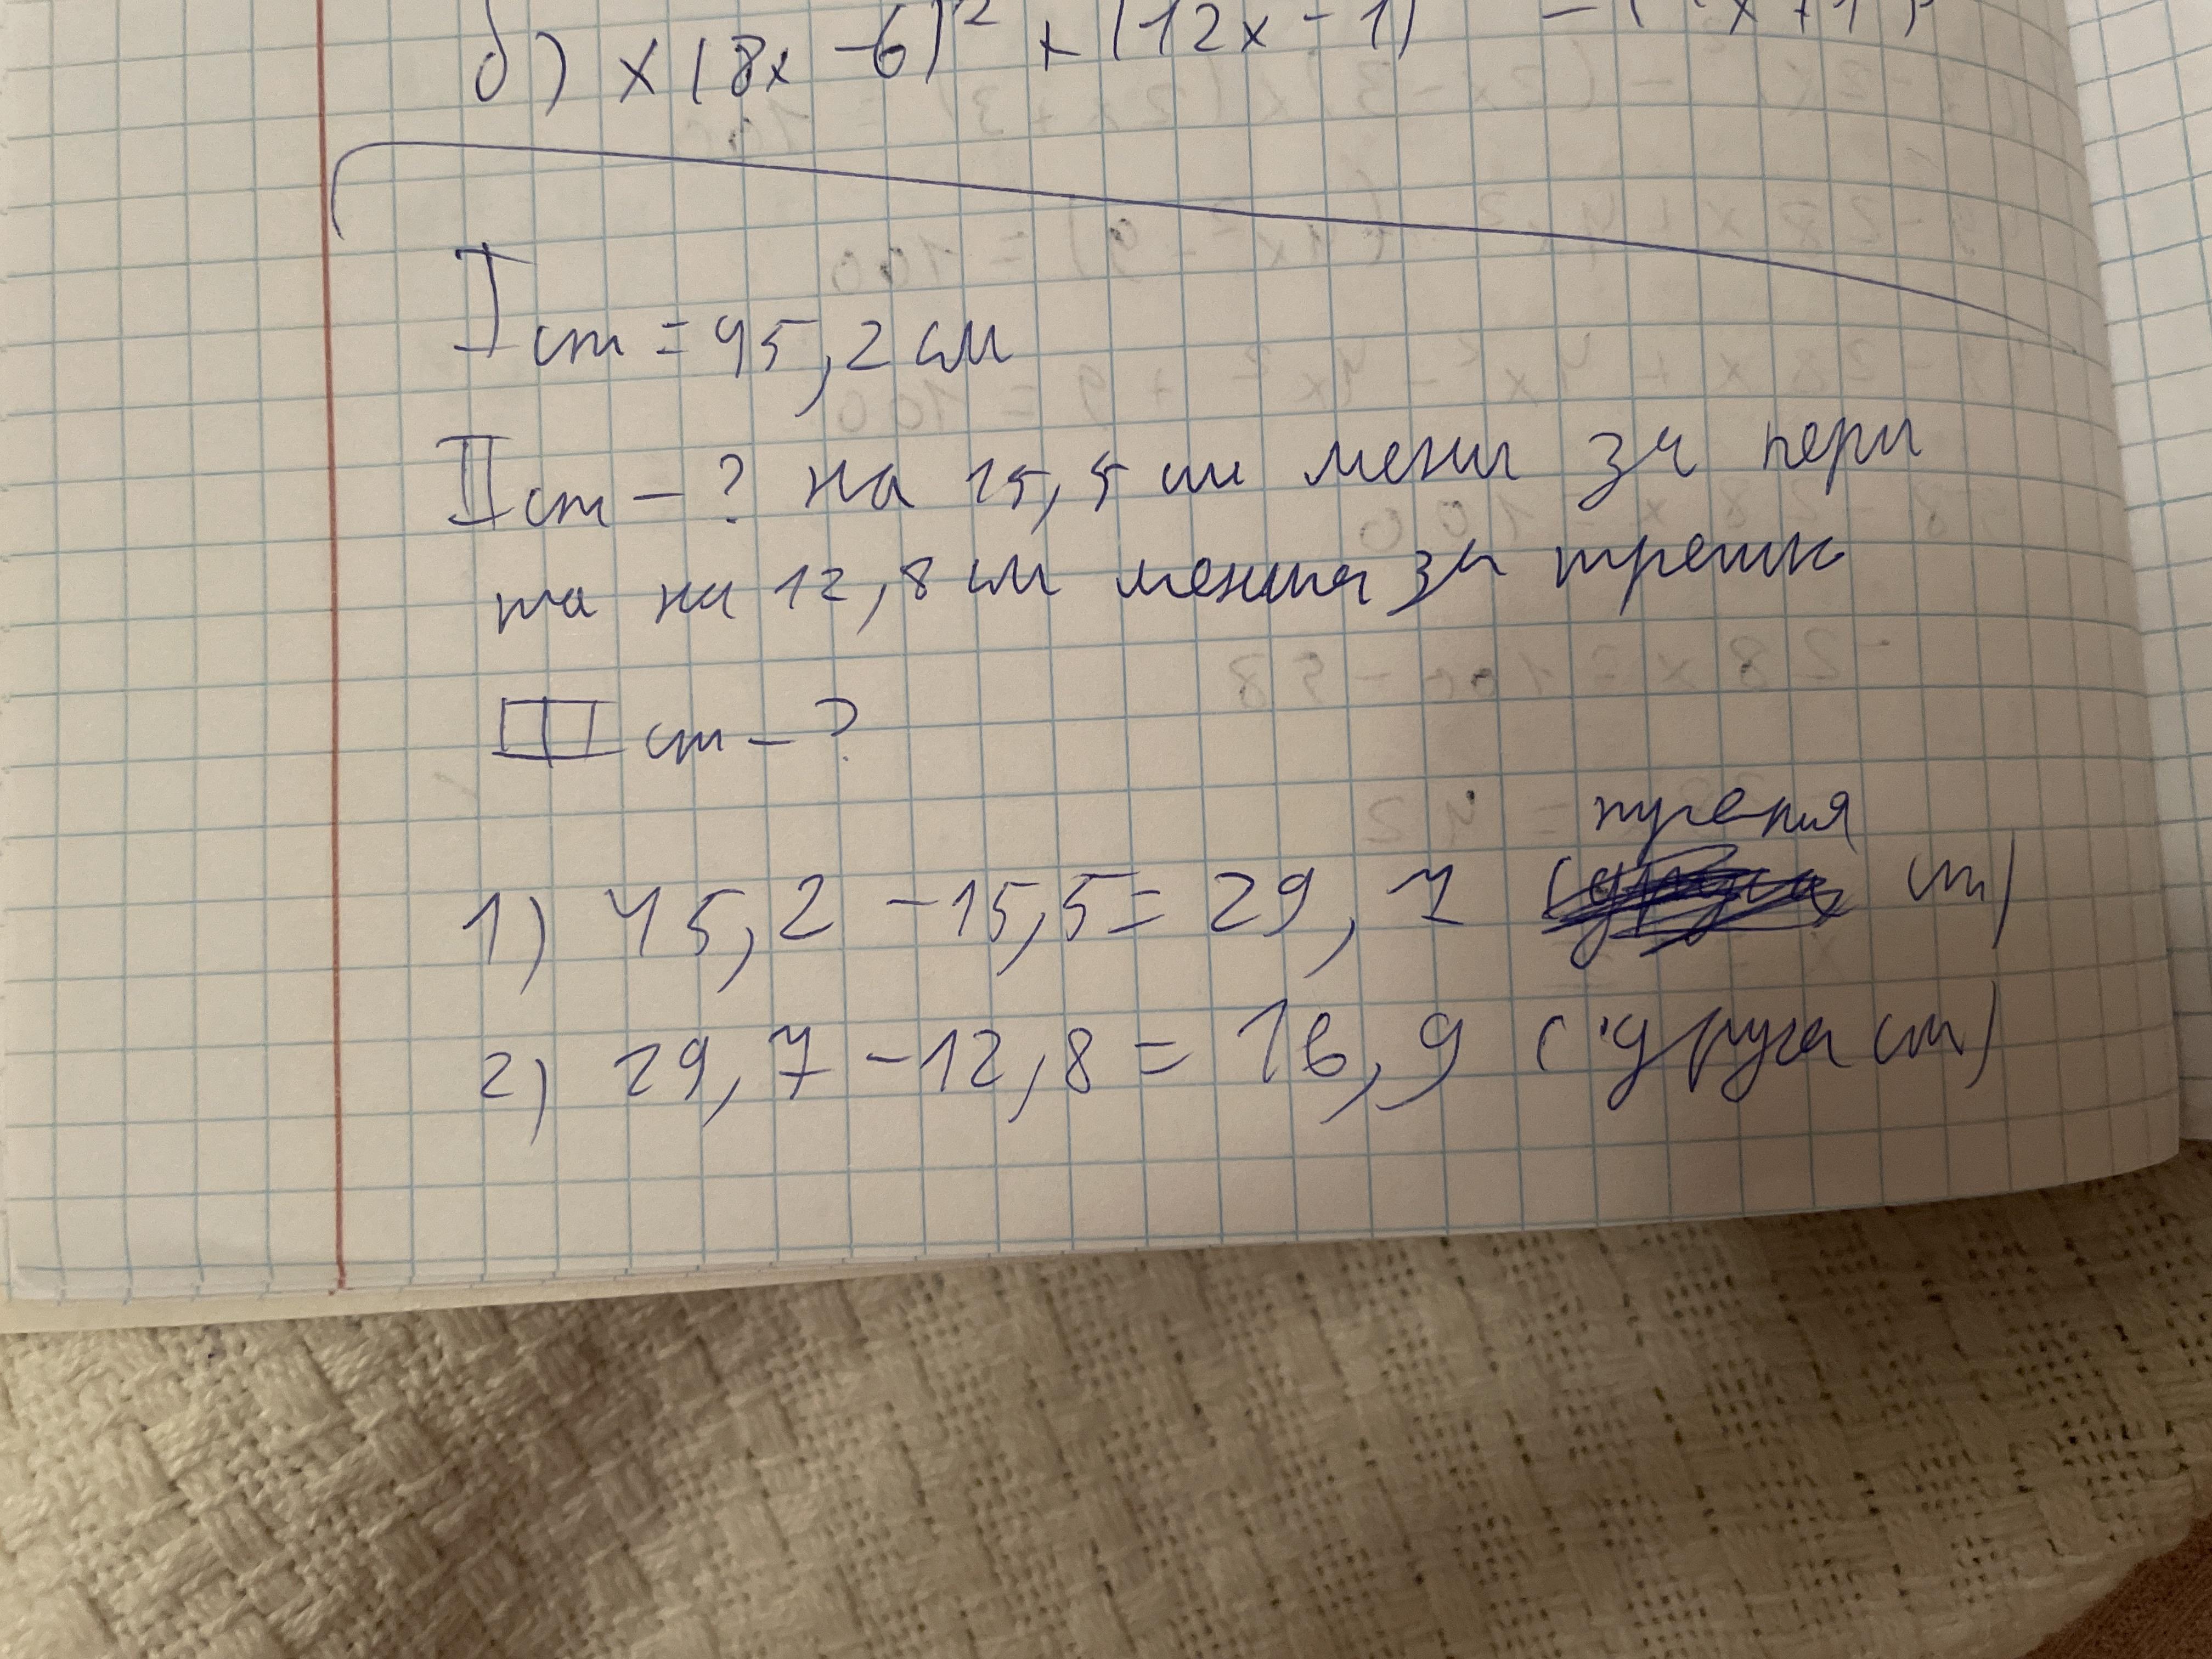 б) x(8x-6)² + (12x-1)
I ст = 45,2 см
II ст - ? на 15,5 см менш за перш
та на 12,8 см менша за третю
III ст - ?
третя
1) 45,2 - 15,5 = 29,7 ст)
2) 29,7 - 12,8 = 16,9 (друга ст)